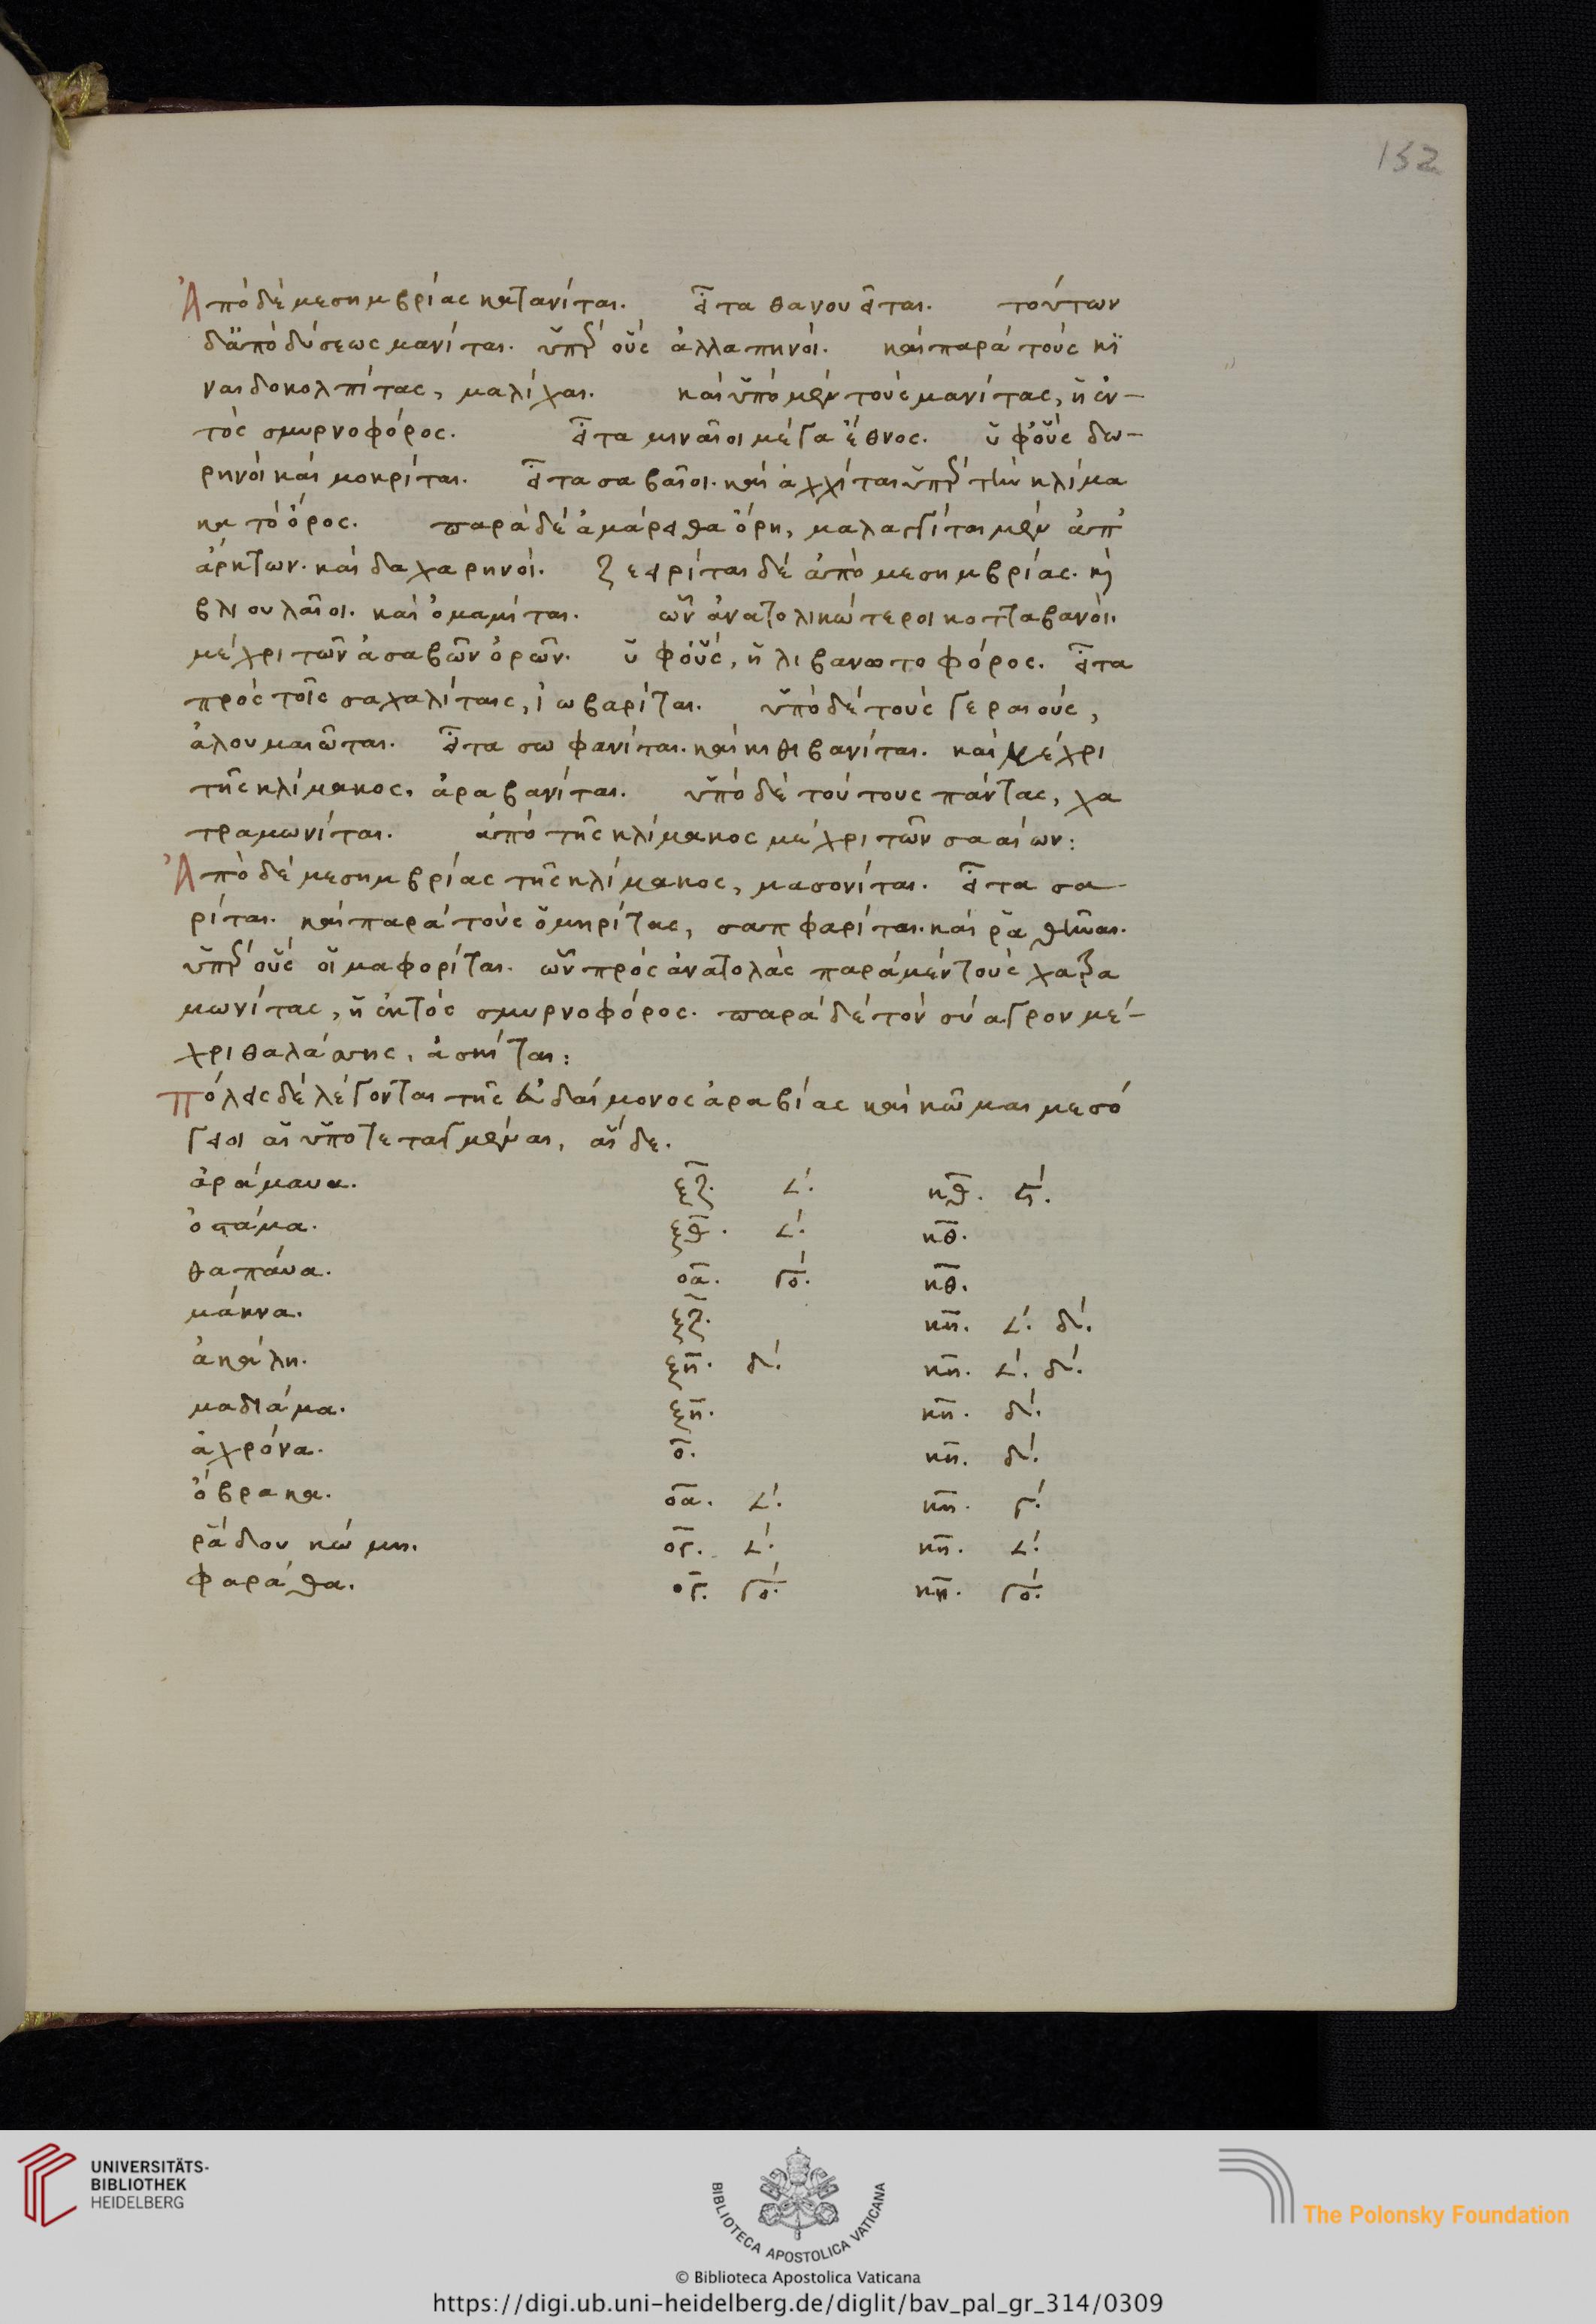 152
Ἀπὸ δὲ μεσημβρίας κατανίται. εἶτα θανουεῖται. τούτων
δ' ἀπὸ δύσεως μανίται. ὑπὲρ οὓς ἀλλαπηνοί. καὶ παρὰ τοὺς κι
ναιδοκολπίτας, μαλίχαι. καὶ ὑπὸ μὲν τοὺς μανίτας, ἡ ἐν-
τὸς σμυρνοφόρος. εἶτα μιναῖοι μέγα ἔθνος. ὑφ' οὓς δω-
ρηνοὶ καὶ μοκρίται. εἶτα σαβαῖοι. καὶ ἀγχίται ὑπὲρ τὴν κλίμα
κα τὸ ὄρος. παρὰ δὲ ἀμάρειθα ὄρη, μαλαγγίται μὲν ἀπ'
ἄρκτων. καὶ δαχαρηνοί. ζεειρίται δὲ ἀπὸ μεσημβρίας. καὶ
βλιουλαῖοι. καὶ ὁμαμίται. ὧν ἀνατολικώτεροι κοτταβανοί.
μέχρι τῶν ἀσαβῶν ὀρῶν. ὑφ' οὓς, ἡ λιβανωτοφόρος. εἶτα
πρὸς τοῖς σαχαλίταις, ἰωβαρίται. ὑπὸ δὲ τοὺς γεραιούς,
ἀλουμαιῶται. εἶτα σωφανίται. καὶ κιθιβανίται. καὶ μέχρι
τῆς κλίμακος. ἀραβανίται. ὑπὸ δὲ τούτους πάντας, χα
τραμωνίται. ἀπὸ τῆς κλίμακος μέχρι τῶν σααίων:
Ἀπὸ δὲ μεσημβρίας τῆς κλίμακος, μασονίται. εἶτα σα-
ρίται. καὶ παρὰ τοὺς ὁμηρίτας, σαπφαρίται. καὶ ῥαθῖναι.
ὑπὲρ οὓς οἱ μαφορίται. ὧν πρὸς ἀνατολὰς παρὰ μὲν τοὺς χατρα
μωνίτας, ἡ ἐκτὸς σμυρνοφόρος. παρὰ δὲ τὸν σύαγρον μέ-
χρι θαλάσσης, ἀσκίται:
πόλεις δὲ λέγονται τῆς εὐδαίμονος ἀραβίας καὶ κῶμαι μεσό
γειοι αἱ ὑποτεταγμέναι, αἵδε.
ἀράμαυα. ξζ. 𐅵. κθ. Ϛ.
ὀσάμα. ξθ. 𐅵. κθ.
θαπάυα. οα. γο. κθ.
μάκνα. ξζ. κη. 𐅵. δ.
ἀκάλη. ξη. δ. κη. 𐅵. δ.
μαδιάμα. ξη. κη. δ.
ἀχρόνα. ο. κη. δ.
ὄβρακα. οα. 𐅵. κη. γ.
ῥάδου κώμη. ογ. 𐅵. κη. 𐅵.
φαράθα. ογ. γο. κη. γο.
UNIVERSITÄTS-
BIBLIOTHEK
HEIDELBERG
BIBLIOTECA APOSTOLICA VATICANA
The Polonsky Foundation
© Biblioteca Apostolica Vaticana
https://digi.ub.uni-heidelberg.de/diglit/bav_pal_gr_314/0309